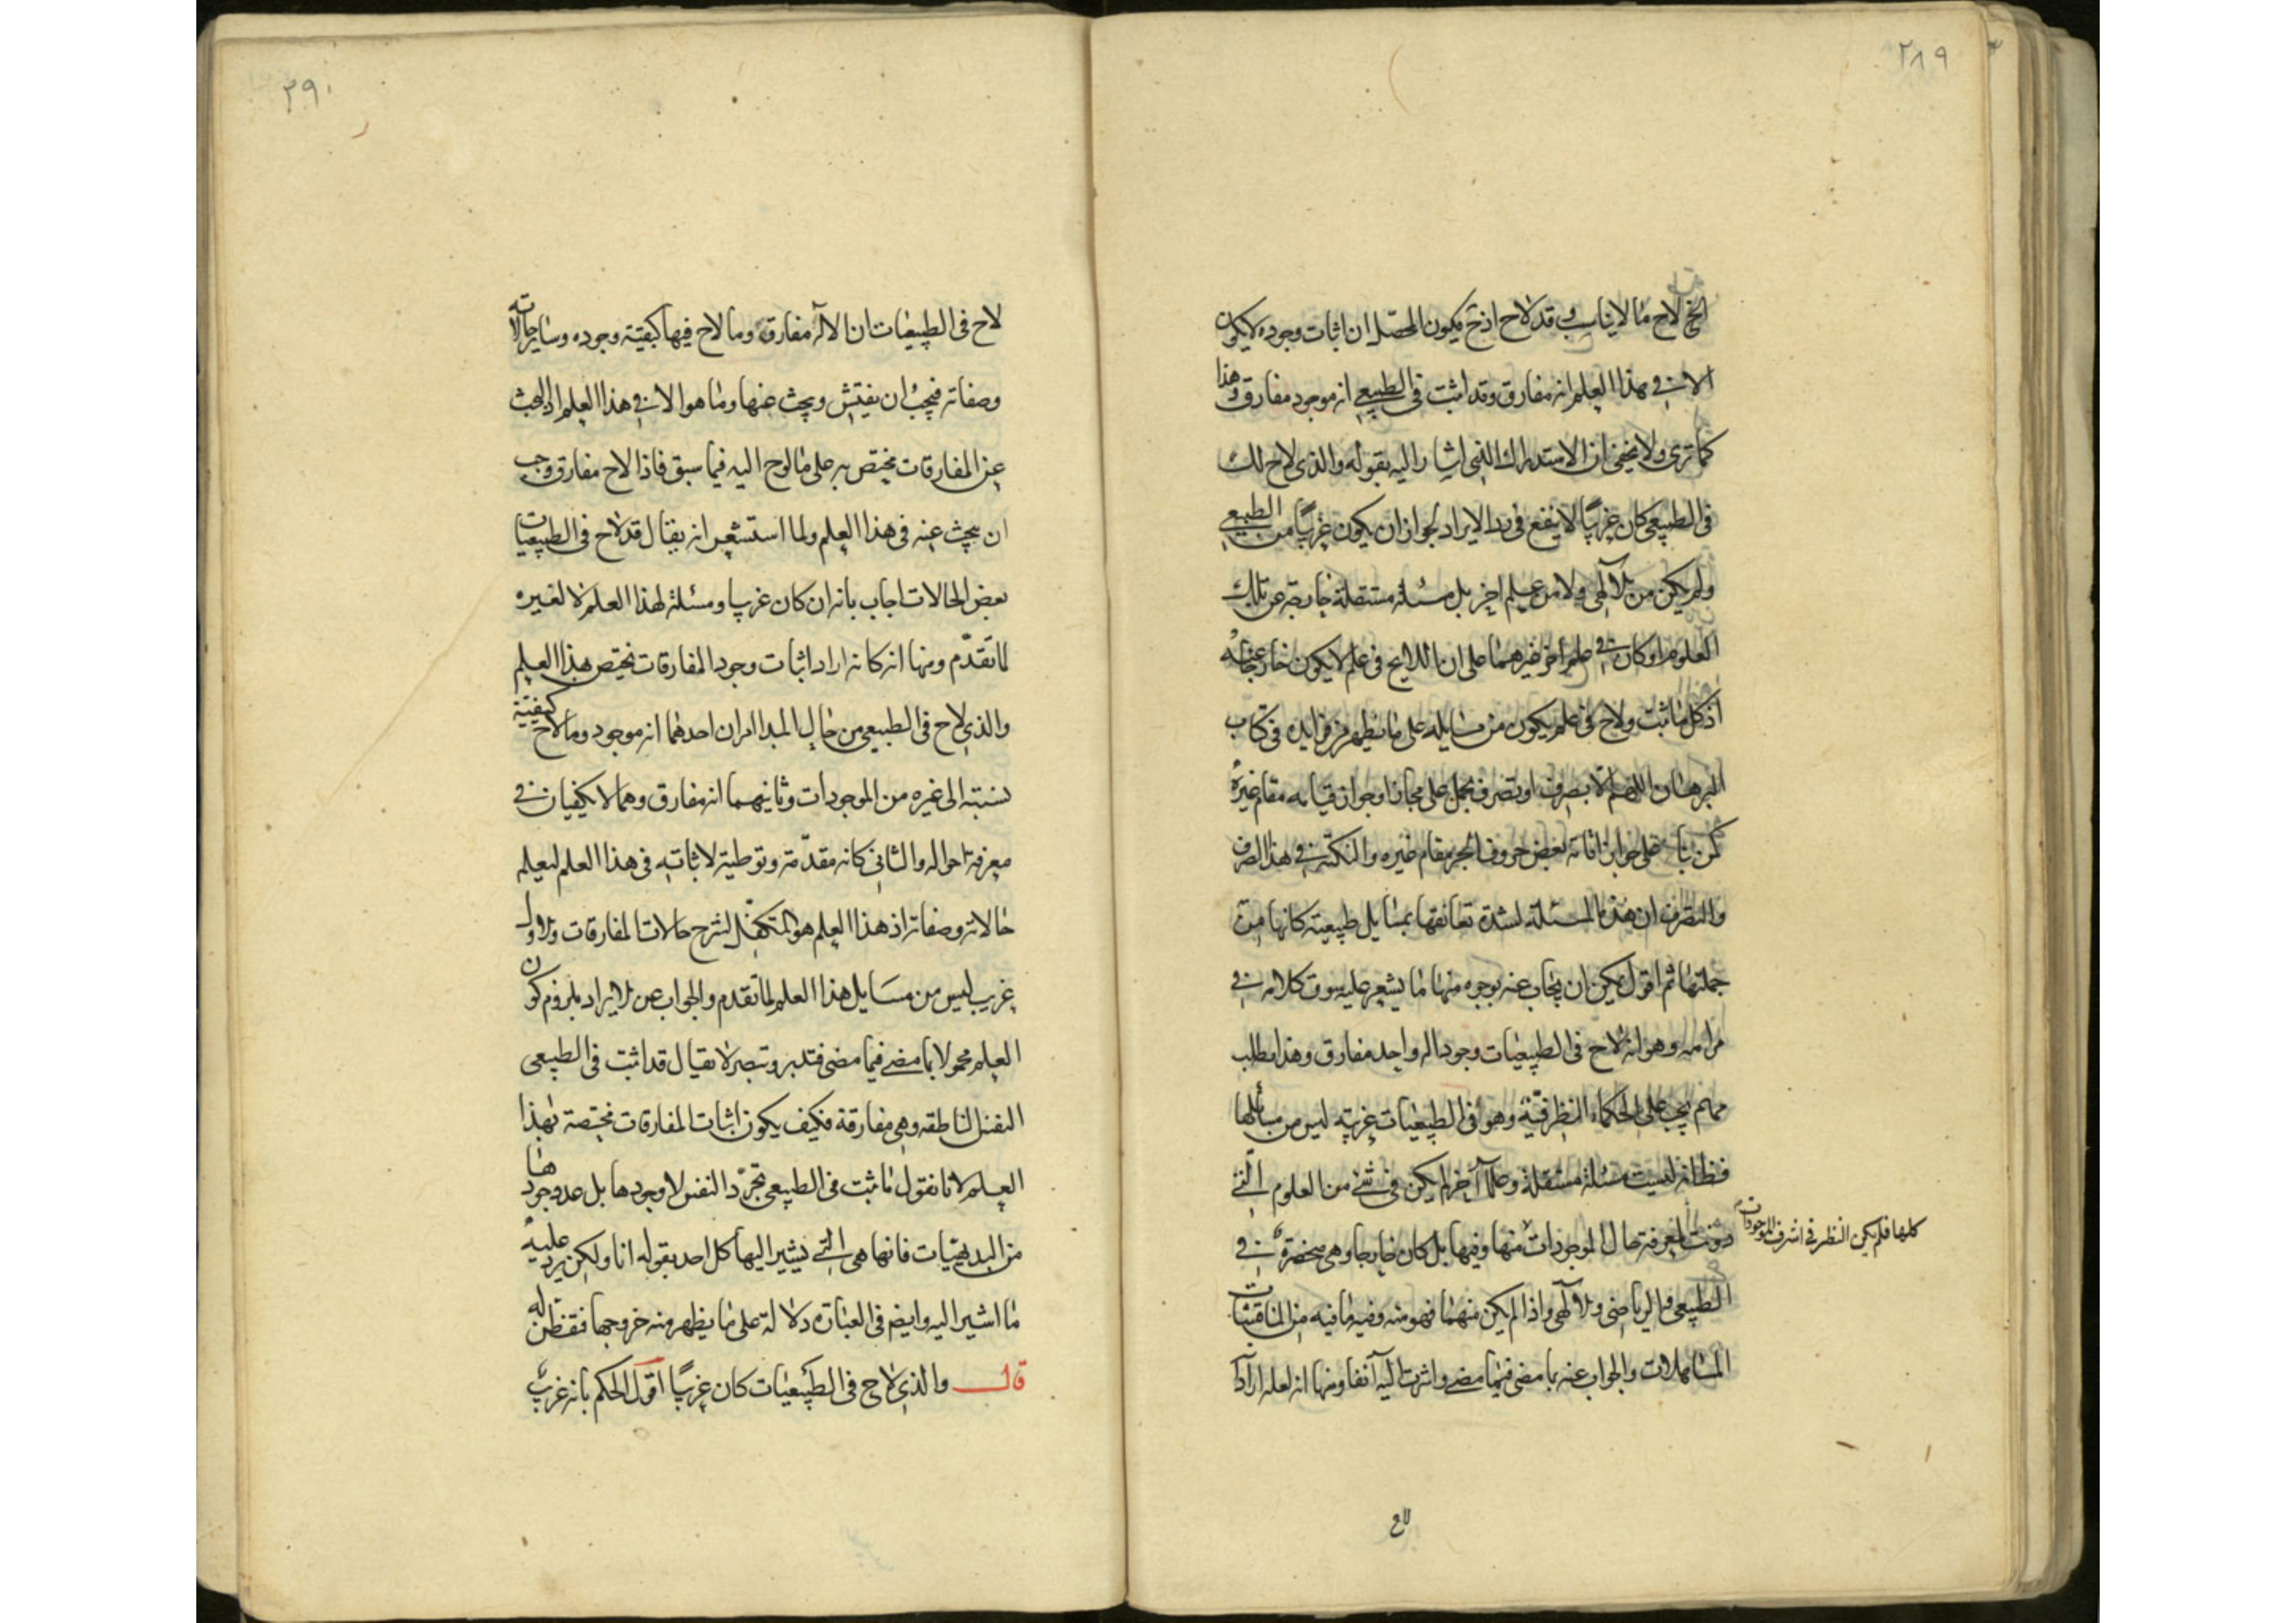 ٢٨٩
الخ لاح ما لا يناسب وقد لاح اذ ح يكون المحصل ان اثبات وجوده لا يكون
الا في هذا العلم انه مفارق وقد اثبت في الطبيعي انه موجود مفارق وهذا
كما ترى ولا يخفى ان الاستدراك الذي اشار اليه بقوله والذي لاح لك
في الطبيعي كان غريبا لا ينفع في رد الايراد لجواز ان يكون غريبا من الطبيعي
ولم يكن من الالهي ولا من علم اخر بل مسئلة مستقلة خارجة عن تلك
العلوم او كان في علم اخر غيرهما على ان اللايح في علم لا يكون خارجا عنه
اذ كل ما ثبت ولاح في علم يكون من مسايله على ما يظهر من فرايده في كتاب
البرهان اللهم الا بصرف او تصرف بحمل على مجاز او جواز قيامه مقام غيره
كمن بناء على جواز اقامة بعض حروف الجر مقام غيره والنكتة في هذا الصرف
والتصرف ان هذه المسئلة لشدة تعانقها بمسايل طبيعية كانها من
جملتها ثم اقول يمكن ان يجاب عنه بوجوه منها ما يشعر عليه سوق كلامه في
مرامه وهو انه لاح في الطبيعيات وجود اله واحد مفارق وهذا مطلب
مهم يجب على الحكماء النظر فيه وهو في الطبيعيات غريبة ليس من مسائلها
فظ انه ليست مسئلة مستقلة وعلما آخر لم يكن في شئ من العلوم التي
دونت لمعرفة حال الموجودات منها وفيها بل كان خارجا وهي منحصرة في
كلها فلم يكن النظر في اشرف الموجودات
الطبيعي والرياضي والالهي واذا لم يكن منهما فهو منه وفيه ما فيه من المناقشات
المساهلات والجواب عنه بما مضى فيما مضى واشرت اليه آنفا ومنها انه لعله اراد
لاح
٢٩٠
لاح في الطبيعيات ان الاله مفارق وما لاح فيها كيفية وجوده وساير حالاته
وصفاته فيجب ان يفتش ويبحث عنها وما هو الا في هذا العلم اذ البحث
عن المفارقات مختص به على ما لوح اليه فيما سبق فاذا لاح مفارق وجب
ان يبحث عنه في هذا العلم ولما استشعر انه يقال قد لاح في الطبيعيات
بعض الحالات اجاب بانه ان كان غريبا ومسئلة لهذا العلم لا لغيره
لما تقدّم ومنها انه كانه اراد اثبات وجود المفارقات يختص بهذا العلم
والذي لاح في الطبيعي من حال المبدا امران احدهما انه موجود وما لاح كيفية
نسبته الى غيره من الموجودات وثانيهما انه مفارق وهما لا يكفيان في
معرفة احواله والثاني كانه مقدّمة وتوطية لاثباته في هذا العلم ليعلم
حالاته وصفاته اذ هذا العلم هو المتكفّل لشرح حالات المفارقات
غريب ليس من مسَايل هذا العلم لما تقدم والجواب عن الايراد بلزوم كون
العلم محمولا بما مضى فيما مضى فتدبر وتبصر لا يقال قد اثبت في الطبيعي
النفس الناطقه وهي مفارقة فكيف يكون اثبات المفارقات مختصة بهذا
العلم لانا نقول ما ثبت في الطبيعي تجرّد النفس لا وجودها بل عد وجودها
من البديهيّات فانها هي التي يشير اليها كل احد بقوله انا ولكن يرد عليه
ما اشير اليه وايضا في العبارة دلالة على ما يظهر منه خروجها فتفطن له
قال والذي لاح في الطبيعيات كان غريبًا اقول الحكم بانه غريب